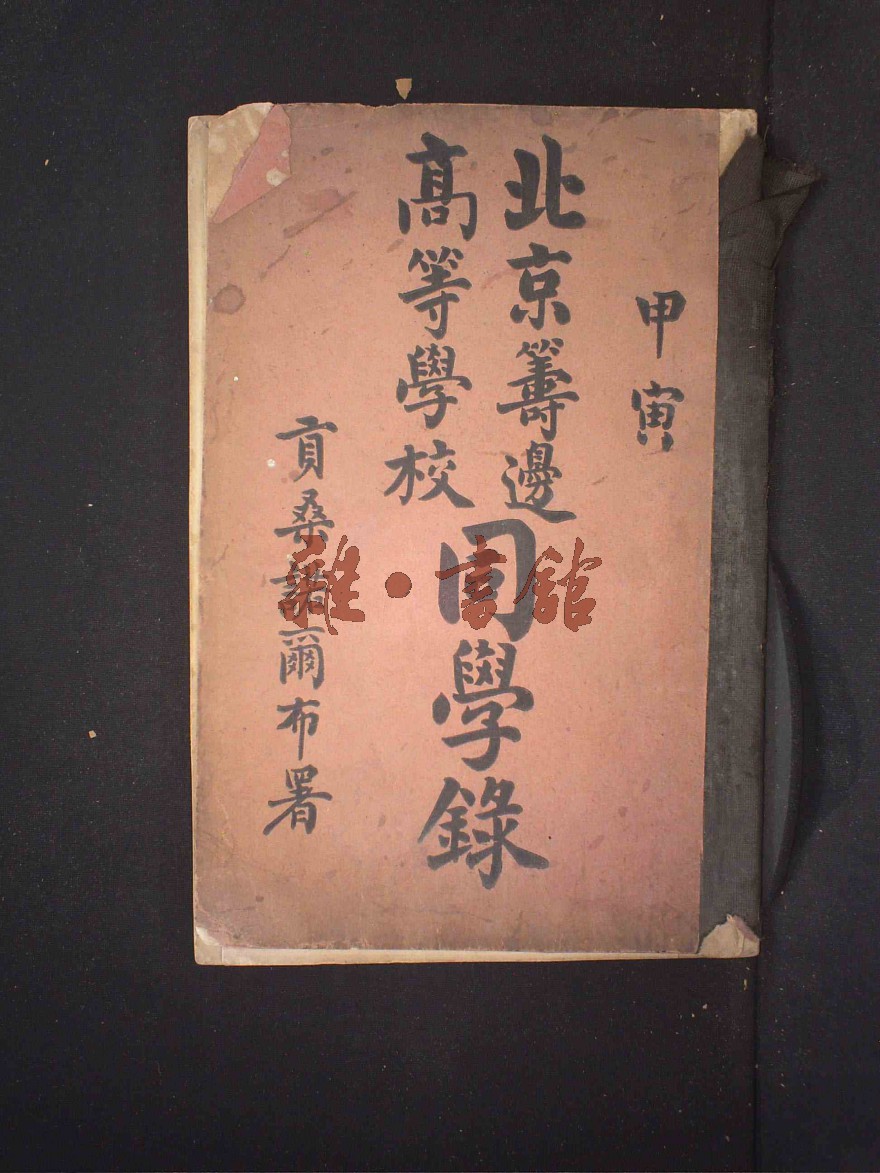 甲寅
北京籌邊
高等學校
同學錄
貢桑諾爾布署
雜·書館